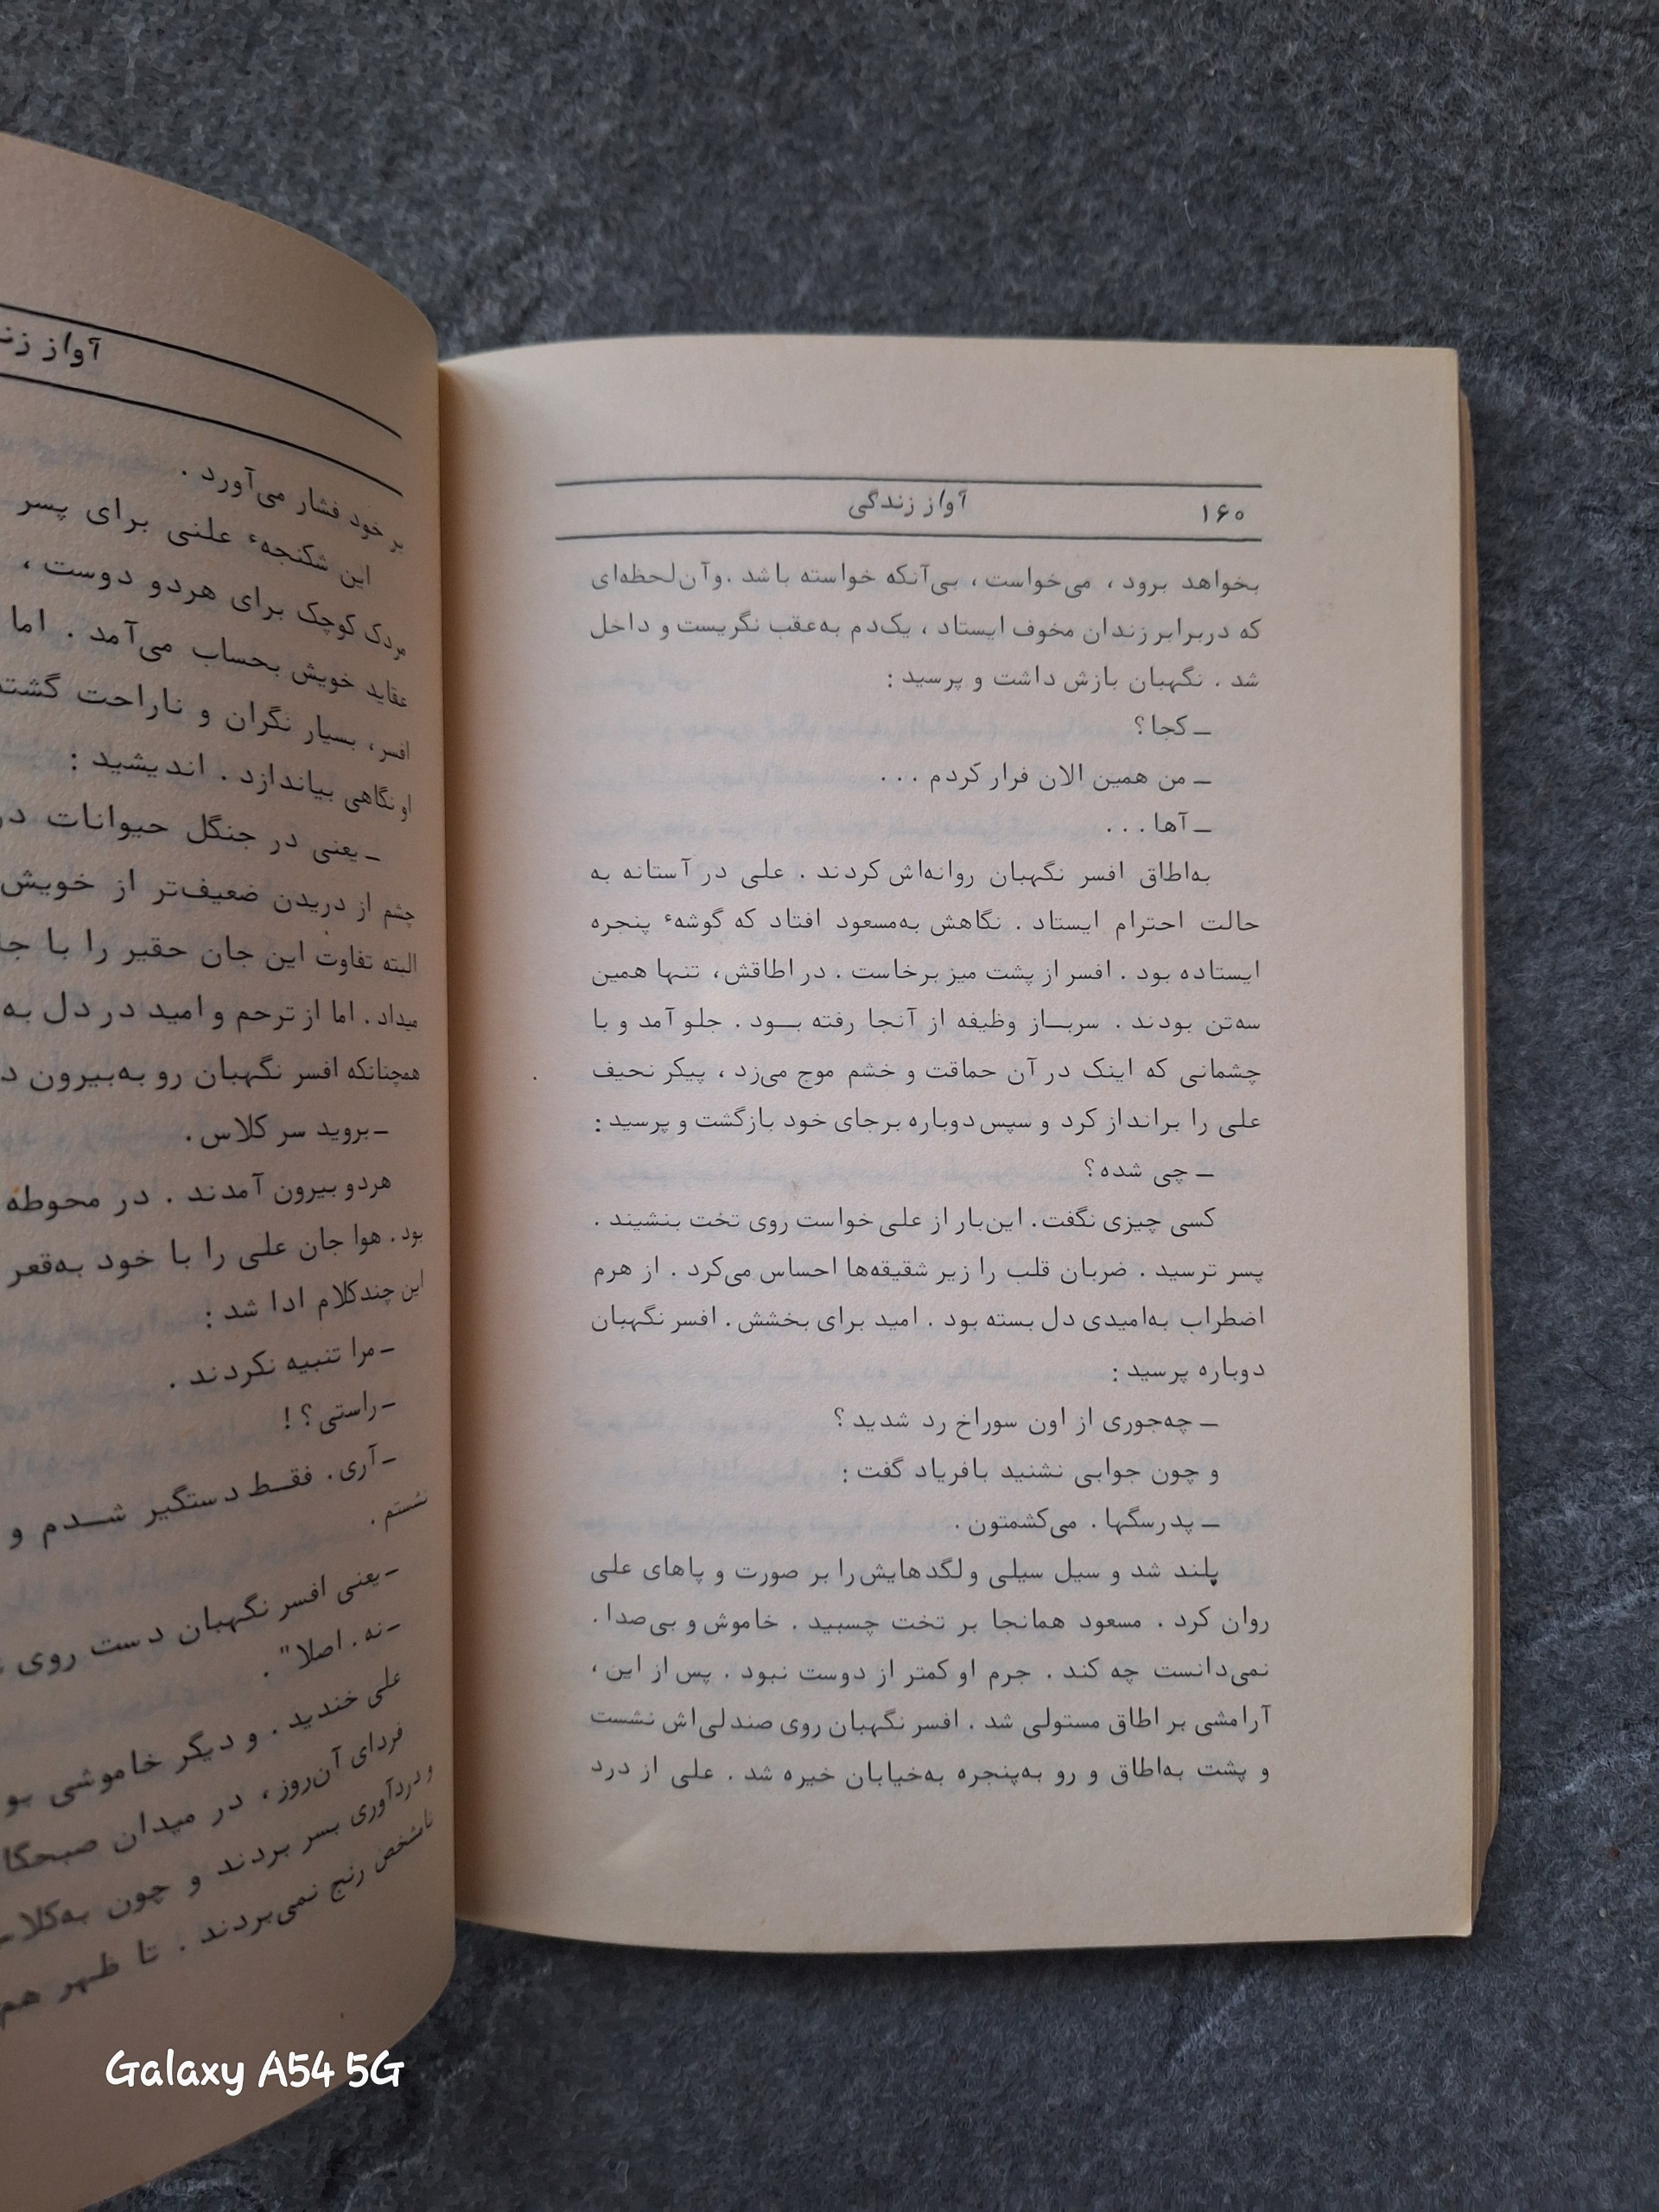 ۱۶۰
آواز زندگی
بخواهد برود ، می‌خواست ، بی‌آنکه خواسته باشد .وآن‌لحظه‌ای
که دربرابر زندان مخوف ایستاد ، یک‌دم به‌عقب نگریست و داخل
شد . نگهبان بازش داشت و پرسید :
ــ کجا؟
ــ من همین الان فرار کردم . . .
ــ آها . . .
به‌اطاق افسر نگهبان روانه‌اش کردند . علی در آستانه به
حالت احترام ایستاد . نگاهش به‌مسعود افتاد که گوشهٔ پنجره
ایستاده بود . افسر از پشت میز برخاست . در اطاقش، تنها همین
سه‌تن بودند . سربــاز وظیفه از آنجا رفته بــود . جلو آمد و با
چشمانی که اینک در آن حماقت و خشم موج می‌زد ، پیکر نحیف
علی را برانداز کرد و سپس دوباره برجای خود بازگشت و پرسید :
ــ چی شده؟
کسی چیزی نگفت. این‌بار از علی خواست روی تخت بنشیند .
پسر ترسید . ضربان قلب را زیر شقیقه‌ها احساس می‌کرد . از هرم
اضطراب به‌امیدی دل بسته بود . امید برای بخشش. افسر نگهبان
دوباره پرسید :
ــ چه‌جوری از اون سوراخ رد شدید ؟
و چون جوابی نشنید بافریاد گفت :
ــ پدرسگها . می‌کشمتون .
پلند شد و سیل سیلی و لگدهایش‌را بر صورت و پاهای علی
روان کرد . مسعود همانجا بر تخت چسبید . خاموش و بی‌صدا.
نمی‌دانست چه کند . جرم او کمتر از دوست نبود . پس از این،
آرامشی بر اطاق مستولی شد . افسر نگهبان روی صندلی‌اش نشست
و پشت به‌اطاق و رو به‌پنجره به‌خیابان خیره شد . علی از درد
آواز
بر خود فشار می‌آورد .
این شکنجهٔ علنی برای پسر
مردک کوچک برای هردو دوست ،
عقاید خویش بحساب می‌آمد . اما
افسر، بسیار نگران و ناراحت
او نگاهی بیاندازد . اندیشید :
ــ یعنی در جنگل حیوانات
چشم از دریدن ضعیف‌تر از خویش
البته تفاوت این جان حقیر را با
میداد . اما از ترحم و امید در دل به
همچنانکه افسر نگهبان رو به‌بیرون
ــ بروید سر کلاس.
هردو بیرون آمدند . در محوطه
بود. هوا جان علی را با خود به‌قعر
این چندکلام ادا شد :
ــ مرا تنبیه نکردند .
ــ راستی؟ !
ــ آری. فقــط دستگیر شــدم و
نشستم .
ــ یعنی افسر نگهبان دست روی
ــ نه. اصلا" .
علی خندید . و دیگر خاموشی
فردای آن‌روز، در میدان
و دردآوری بسر بردند و چون
نامشخص رنج نمی‌بردند . تا ظهر هم
Galaxy A54 5G